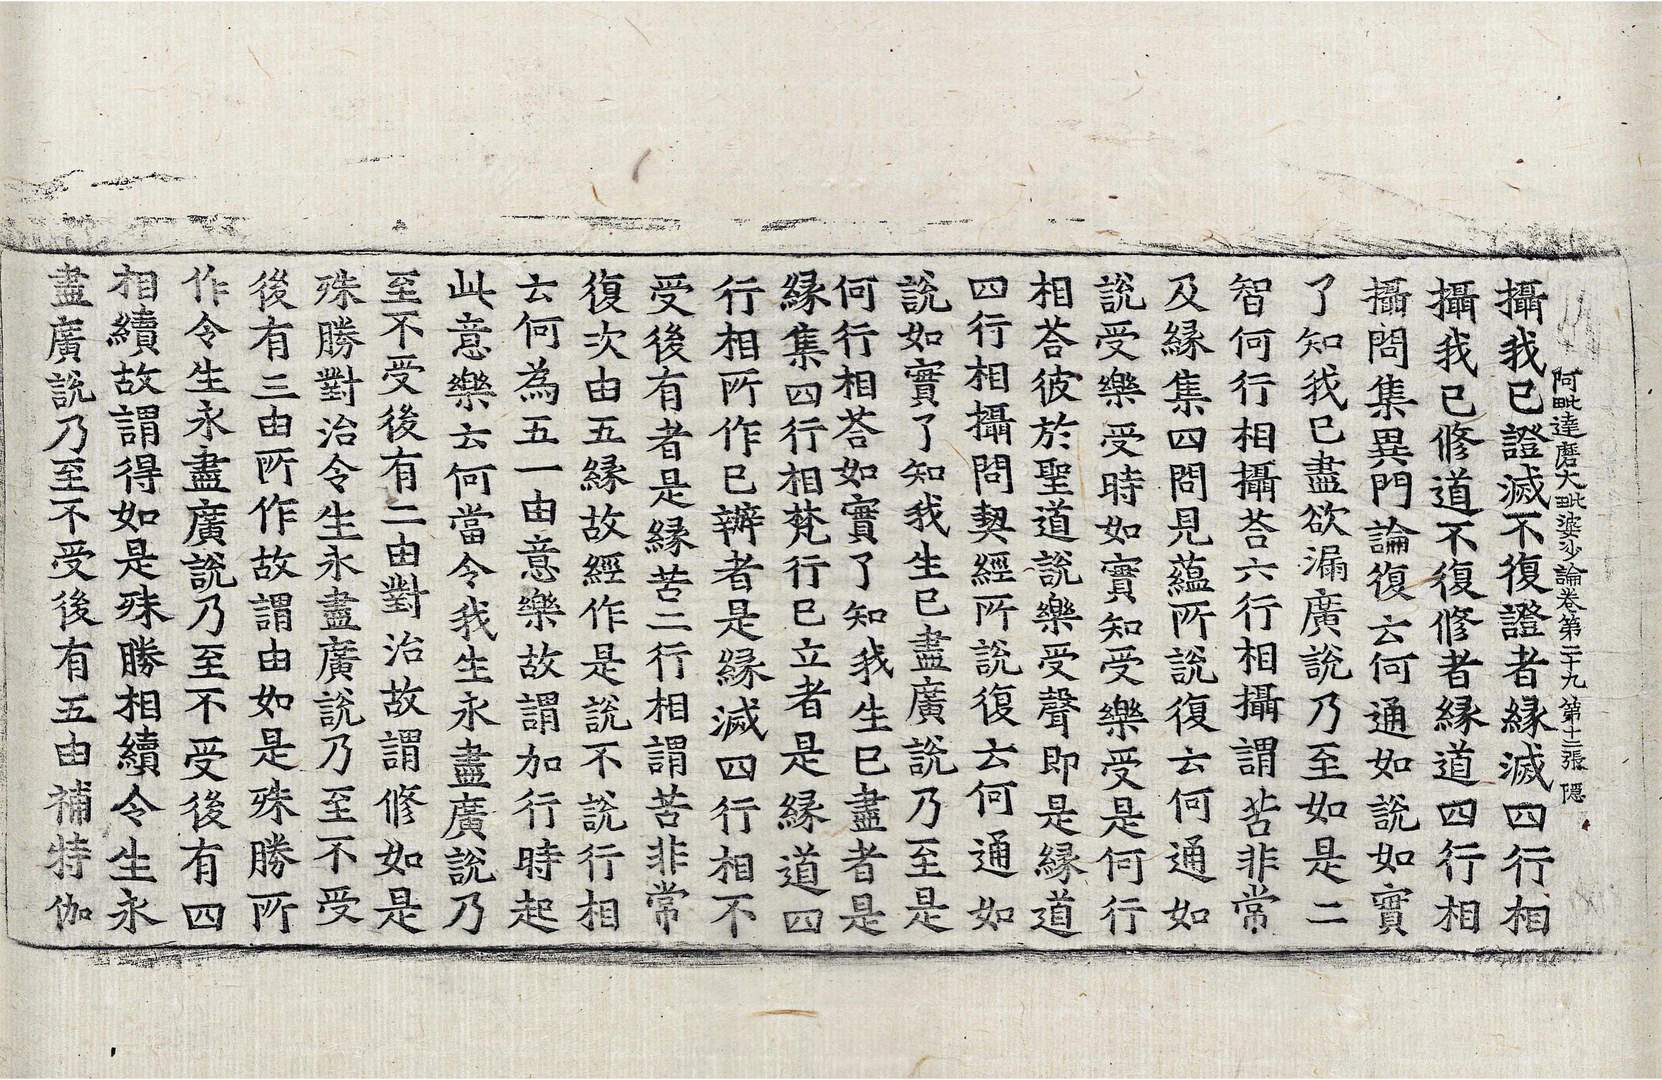 阿毗達磨大毗婆沙論卷第二十九 第十二張 隱
攝我已證滅不復證者緣滅四行相
攝我已修道不復修者緣道四行相
攝問集異門論復云何通如說如實
了知我已盡欲漏廣說乃至如是二
智何行相攝荅六行相攝謂苦非常
及緣集四問見蘊所說復云何通如
說受樂受時如實知受樂受是何行
相荅彼於聖道說樂受聲即是緣道
四行相攝問契經所說復云何通如
說如實了知我生已盡廣說乃至是
何行相荅如實了知我生已盡者是
緣集四行相梵行已立者是緣道四
行相所作已辦者是緣滅四行相不
受後有者是緣苦二行相謂苦非常
復次由五緣故經作是說不說行相
云何為五一由意樂故謂加行時起
此意樂云何當令我生永盡廣說乃
至不受後有二由對治故謂修如是
殊勝對治令生永盡廣說乃至不受
後有三由所作故謂由如是殊勝所
作令生永盡廣說乃至不受後有四
相續故謂得如是殊勝相續令生永
盡廣說乃至不受後有五由補特伽